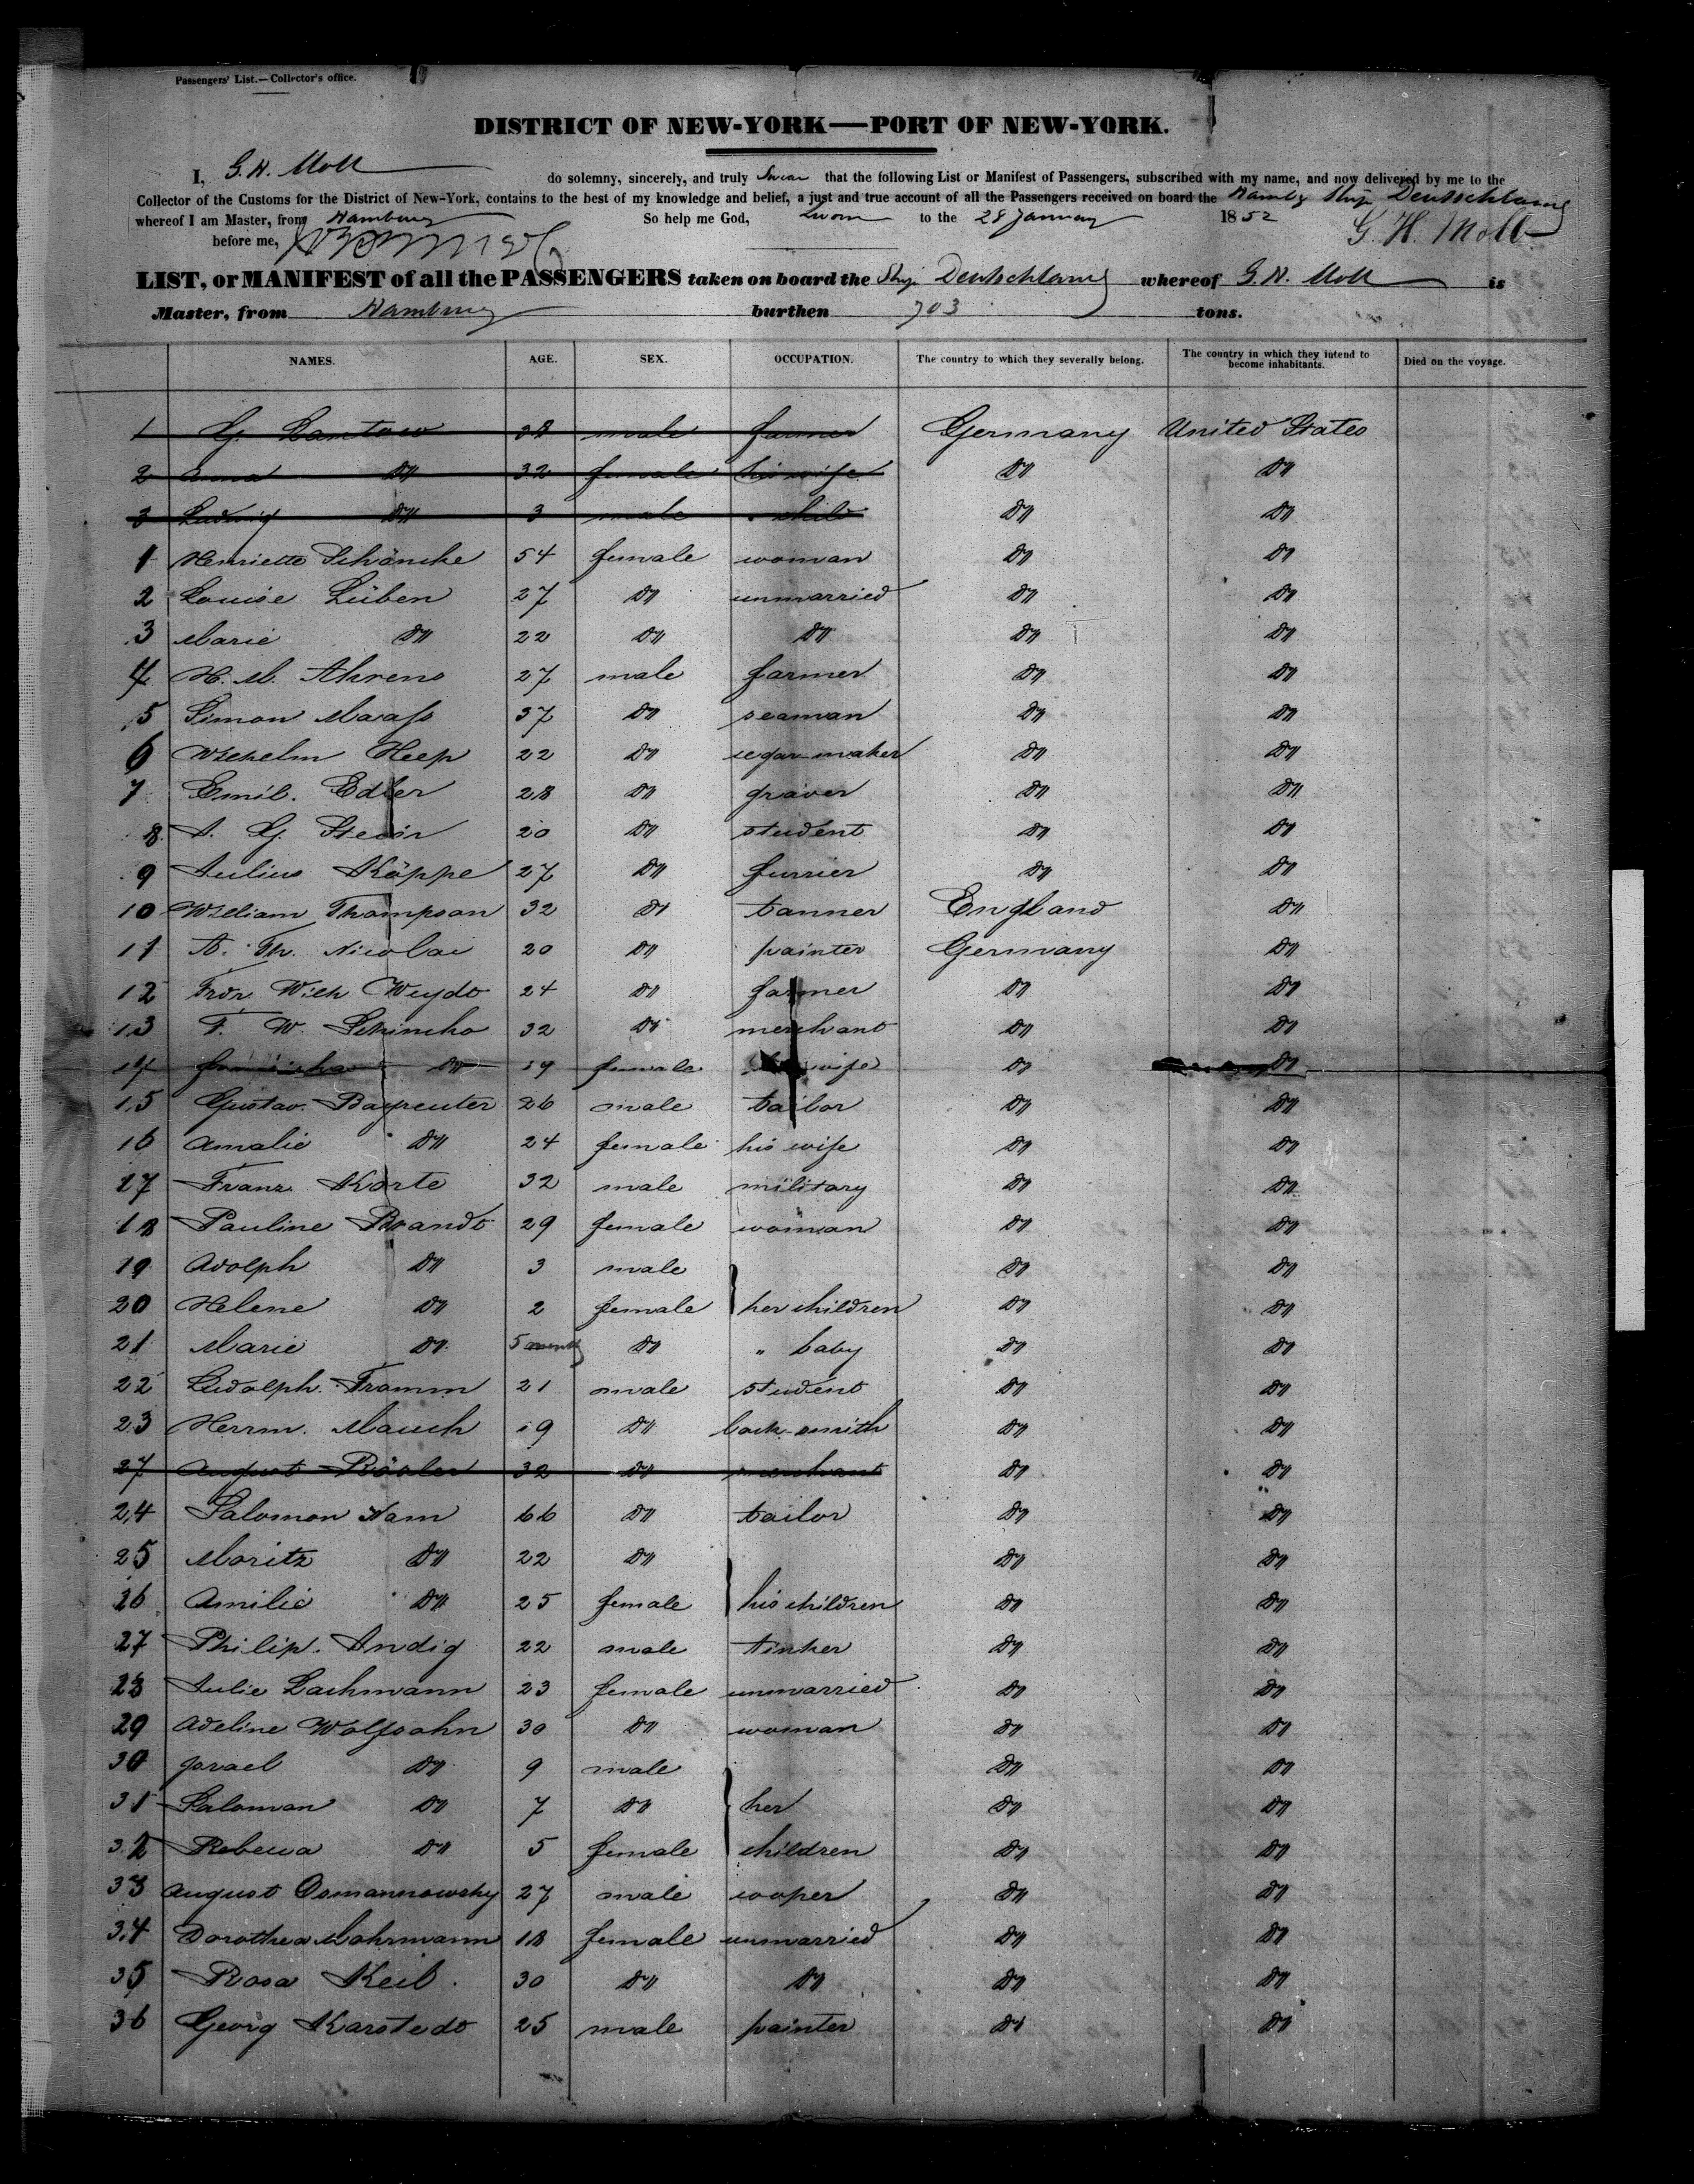 Passengers' List.—Collector's office.
DISTRICT OF NEW-YORK—PORT OF NEW-YORK.
I, G. H. Moll do solemny, sincerely, and truly swear that the following List or Manifest of Passengers, subscribed with my name, and now delivered by me to the
Collector of the Customs for the District of New-York, contains to the best of my knowledge and belief, a just and true account of all the Passengers received on board the Hambg Ship Deutschland
whereof I am Master, from Hamburg So help me God, Sworn to the 28 January 1852 G. H. Moll
before me,
LIST, or MANIFEST of all the PASSENGERS taken on board the Ship Deutschland whereof G. H. Moll is
Master, from Hamburg burthen 703 tons.
NAMES. AGE. SEX. OCCUPATION. The country to which they severally belong. The country in which they intend to become inhabitants. Died on the voyage.
1 G. Lantow 38 male farmer Germany United States
2 Anna Do 32 female his wife Do Do
3 Ludwig Do 3 male child Do Do
1 Henriette Schöncke 54 female woman Do Do
2 Louise Lüben 27 Do unmarried Do Do
3 Marie Do 22 Do Do Do Do
4 H. M. Ahrens 27 male farmer Do Do
5 Simon Maass 37 Do seaman Do Do
6 Wilhelm Heep 22 Do segar-maker Do Do
7 Emil. Edler 28 Do graver Do Do
8 A. G. 20 Do student Do Do
9 Julius Köppe 27 Do furrier Do Do
10 William Thompson 32 Do tanner England Do
11 A. Th. Nicolai 20 Do painter Germany Do
12 Frdr. Wilh Weydt 24 Do farmer Do Do
13 F. W. Schincke 32 Do merchant Do Do
14 Do 19 female wife Do Do
15 Gustav. Bayreuter 26 male tailor Do Do
16 Amalie Do 24 female his wife Do Do
17 Franz Korte 32 male military Do Do
18 Pauline Brandt 29 female woman Do Do
19 Adolph Do 3 male Do Do
20 Helene Do 2 female her children Do Do
21 Marie Do 5 months Do " baby Do Do
22 Ludolph. Framm 21 male student Do Do
23 Herrm. Mauch 19 Do lock-smith Do Do
27 August Rösler 32 Do merchant Do Do
24 Salomon Nam 66 Do tailor Do Do
25 Moritz Do 22 Do Do Do
26 Amilie Do 25 female his children Do Do
27 Philip. Andig 22 male tinker Do Do
28 Julie Lachmann 23 female unmarried Do Do
29 Adeline Wolfsohn 30 Do woman Do Do
30 Israel Do 9 male Do Do
31 Saloman Do 7 Do her Do Do
32 Rebecca Do 5 female children Do Do
33 August Osmannowsky 27 male cooper Do Do
34 Dorothea Mohrmann 18 female unmarried Do Do
35 Rosa Keil. 30 Do Do Do Do
36 Georg Karstedt 25 male painter Do Do